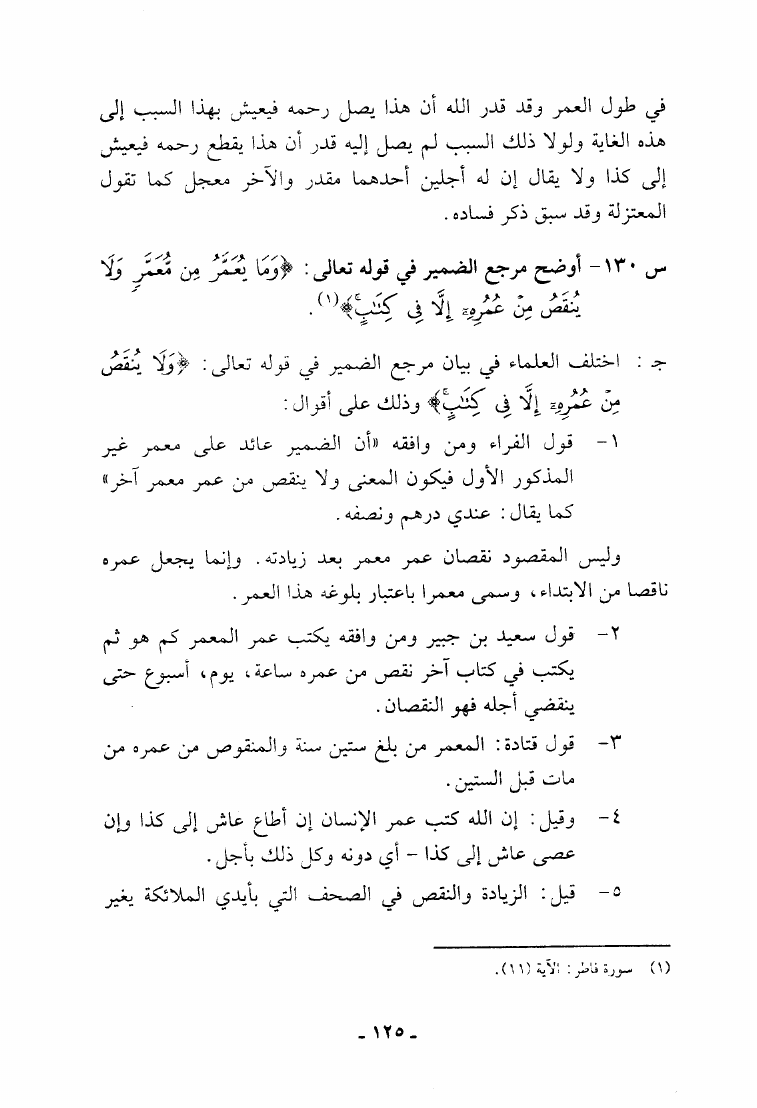 في طول العمر وقد قدر الله أن هذا يصل رحمه فيعيش بهذا السبب إلى
هذه الغاية ولولا ذلك السبب لم يصل إليه قدر أن هذا يقطع رحمه فيعيش
إلى كذا ولا يقال إن له أجلين أحدهما مقدر والآخر معجل كما تقول
المعتزلة وقد سبق ذكر فساده.
س ١٣٠- أوضح مرجع الضمير في قوله تعالى: ﴿وَمَا يُعَمَّرُ مِن مُّعَمَّرٍ وَلَا
يُنقَصُ مِنْ عُمُرِهِۦٓ إِلَّا فِى كِتَٰبٍۚ﴾(١).
جـ : اختلف العلماء في بيان مرجع الضمير في قوله تعالى: ﴿وَلَا يُنقَصُ
مِنْ عُمُرِهِۦٓ إِلَّا فِى كِتَٰبٍۚ﴾ وذلك على أقوال:
١- قول الفراء ومن وافقه «أن الضمير عائد على معمر غير
المذكور الأول فيكون المعنى ولا ينقص من عمر معمر آخر»
كما يقال: عندي درهم ونصفه.
وليس المقصود نقصان عمر معمر بعد زيادته. وإنما يجعل عمره
ناقصا من الابتداء، وسمى معمرا باعتبار بلوغه هذا العمر.
٢- قول سعيد بن جبير ومن وافقه يكتب عمر المعمر كم هو ثم
يكتب في كتاب آخر نقص من عمره ساعة، يوم، أسبوع حتى
ينقضي أجله فهو النقصان.
٣- قول قتادة: المعمر من بلغ ستين سنة والمنقوص من عمره من
مات قبل الستين.
٤- وقيل: إن الله كتب عمر الإنسان إن أطاع عاش إلى كذا وإن
عصى عاش إلى كذا - أي دونه وكل ذلك بأجل.
٥- قيل: الزيادة والنقص في الصحف التي بأيدي الملائكة يغير
(١) سورة فاطر: الآية (١١).
- ١٢٥ -